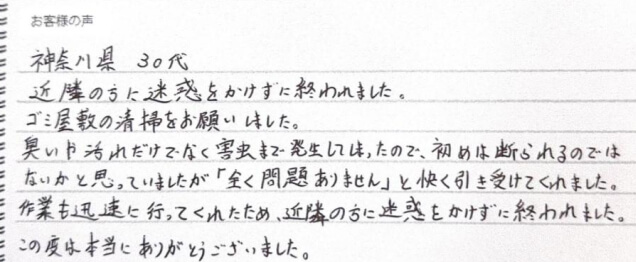 お客様の声
神奈川県 30代
近隣の方に迷惑をかけずに終われました。
ゴミ屋敷の清掃をお願いしました。
臭いや汚れだけでなく害虫まで発生してしまったので、初めは断られるのでは
ないかと思っていましたが「全く問題ありません」と快く引き受けてくれました。
作業も迅速に行ってくれたため、近隣の方に迷惑をかけずに終われました。
この度は本当にありがとうございました。